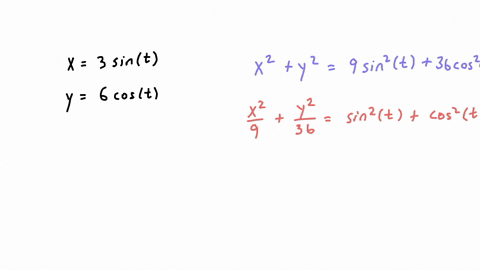 x = 3 sin(t)
y = 6 cos(t)
x² + y² = 9 sin²(t) + 36 cos²
x²/9 + y²/36 = sin²(t) + cos²(t